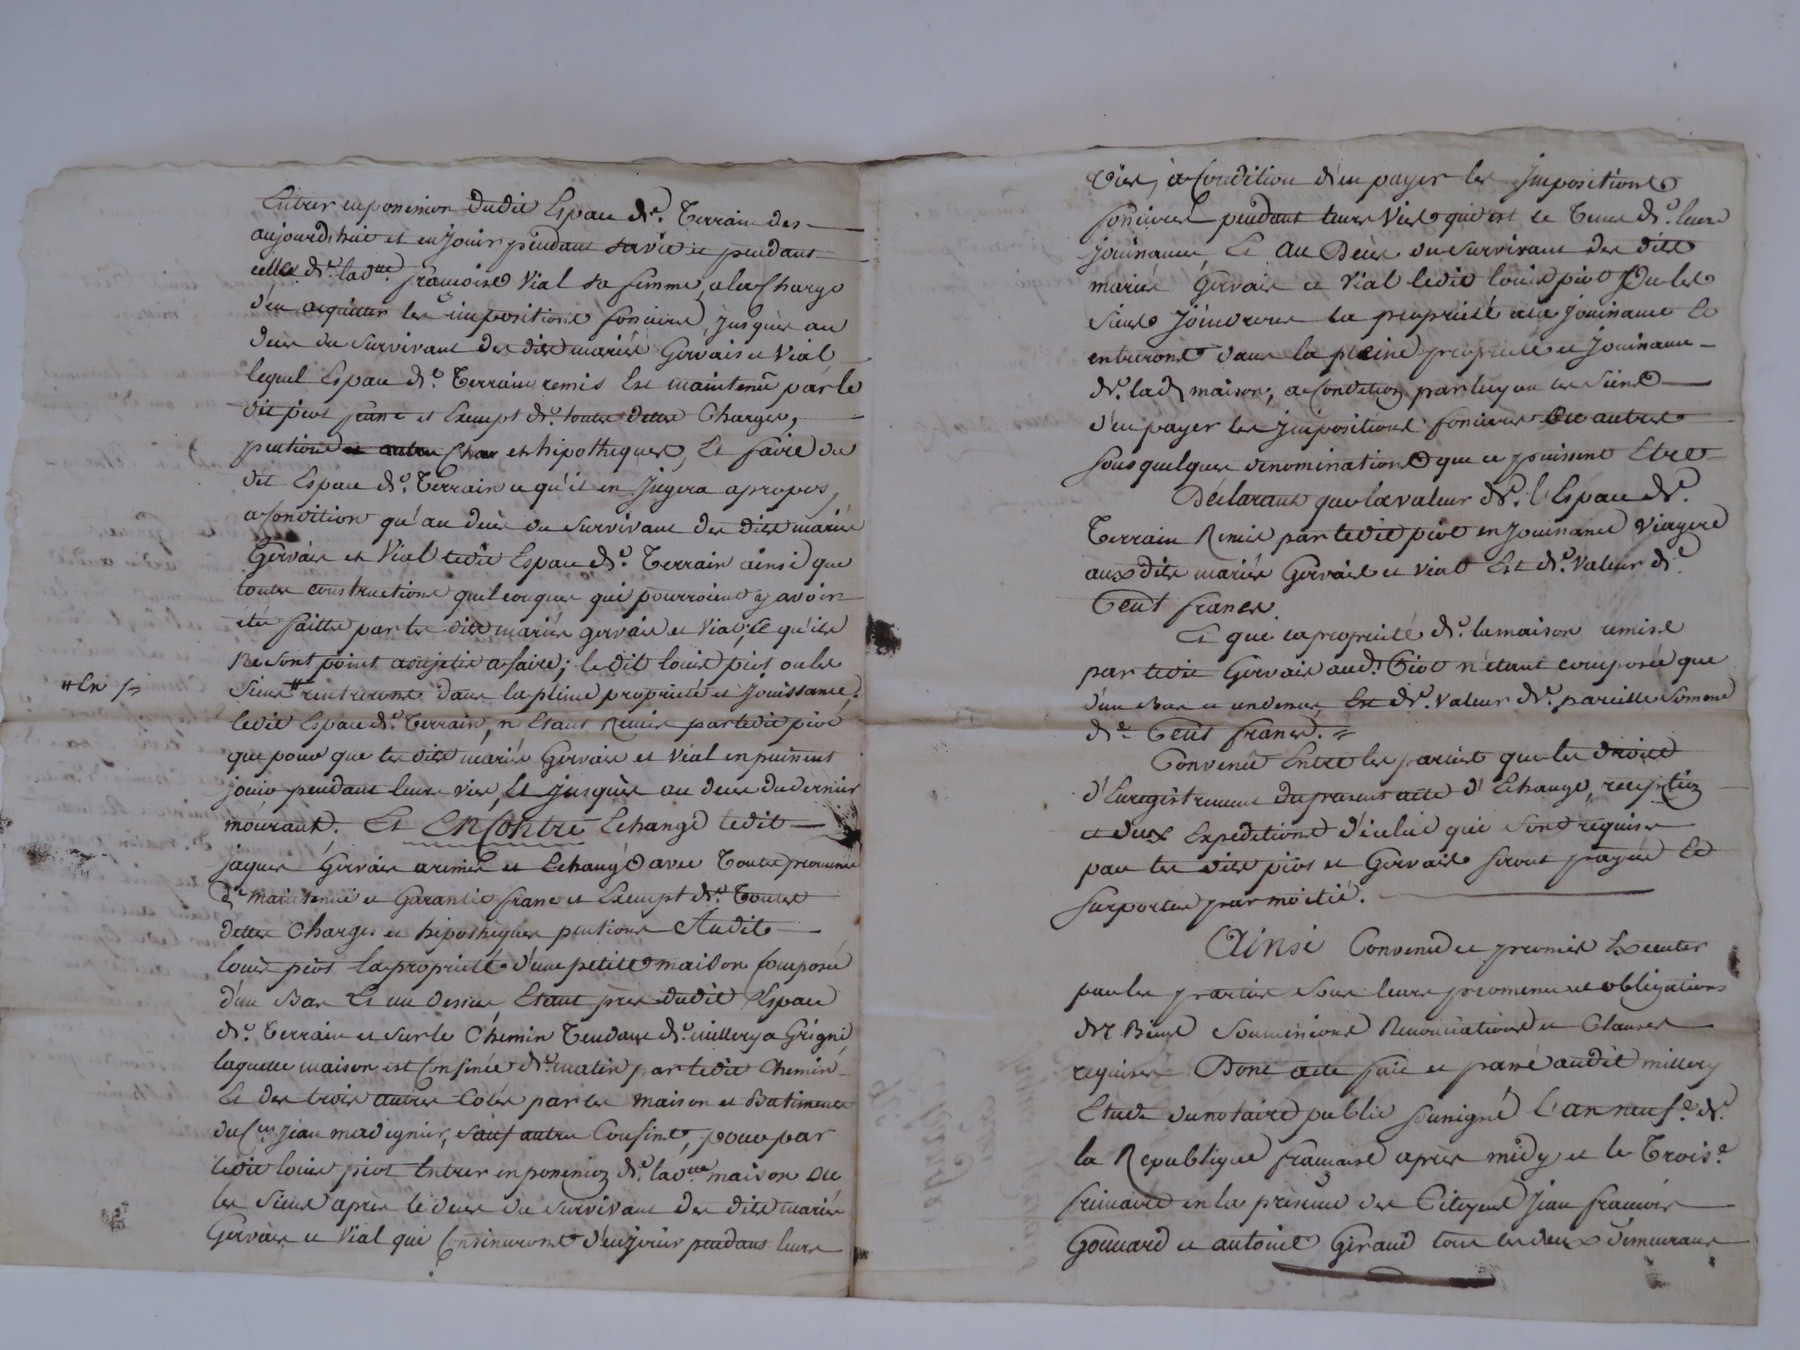 Entrer en possession dudit Espace de. Terrain des
aujourd'huie et en jouir pendant sa vie et pendant
celles de. ladite. françoise Vial sa femme, a la Charge
d'en acquitter les impositions foncieres, jusques au
deces du survivant des dits mariés Gervais et Vial
lequel Espace de. Terrain remis Est maintenû par le
dit piot franc et Exempt de. toutes dettes Charges,
pentions et autre Char et hipotheques, Et faire du
dit Espace de. Terrain ce qu'il en Jugera apropos,
a Condition qu'au deces du survivant des dits mariés
Gervais et Vial ledit Espace de. Terrain ainsi que
toutes constructions quelconques qui pourroient y avoir
été faittes par les dits mariés gervais et Vial, ce qu'ils
Ne sont point assujetis a faire; le dit louis piot ou les
Siens # rentreront dans la pleine propriété et Jouissance,
# En
ledit Espace de. Terrain, n'Etant Remis par ledit piot
que pour que les dits mariés Gervais et Vial en puissent
jouir pendant leurs vies, Et jusques au deces du dernier
mourant. Et EnContre Echange ledit
jaques Gervais a remis et Echangé avec Toutes promesses
de maintenüe et Garantie franc et Exempt de. Toutes
dettes Charges et hipotheques pentions Audit
louis piot la propriété d'une petite maison Composée
d'un Bas Et un Dessus Etant près dudit Espace
de. Terrain et sur le Chemin Tendant de. millery a Grigni
laquelle maison est Confinée de. matin par ledit Chemin
Et des trois autres Cotés par les maison et Batiments
du Cen jean madignier, sauf autres Confins, pour par
ledit louis piot Entrer en possession de. ladite. maison ou
les Siens apres le deces du survivant des dits mariés
Gervais et Vial qui Continueront d'en jouir pendant leurs
Vies, a Condition d'en payer les Impositions
foncieres pendant leurs Vies qui est le Tems de. leurs
jouissances, Et Au Deces du survivant des dits
mariés Gervais et Vial ledit louis piot Ou les
Siens Joindrons la propriété a la jouissance Et
entrerons dans la pleine propriété et Jouissance
de. lad maison, a Condition par luy ou les Siens
d'en payer les Impositions foncieres ou autres
sous quelques denominations que ce puissent Etre
Déclarant que la valeur de. l'Espace de.
Terrain Remis par ledit piot en Jouissance Viagere
aux dits mariés Gervais et vial Est de. Valeur de.
Cent francs.
Et que la propriété de. la maison remise
par ledit Gervais aud. Piot n'étant composée que
d'un Bas et un dessus, Est de. Valeur de. pareille Somme
de Cent francs.
Convenû Entre les parties que les droits
d'Enregistrement du present acte d'Echange, reception
et deux Expeditions d'icelui qui sont requises
par les dits piot et Gervais seront payés Et
surportés par moitié.
Ainsi Convenû et promis Executer
par les parties sous leurs promesses et obligations
de Biens soumissions Renonciations et Clauses
requises Dont acte fait et passé audit millery
Etude du notaire public soussigné l'an neufe. de.
la Republique française après midy et le Troise.
frimaire en la présence des Citoyens Jean françois
Gonnard et antoine Giraud tous les deux demeurans